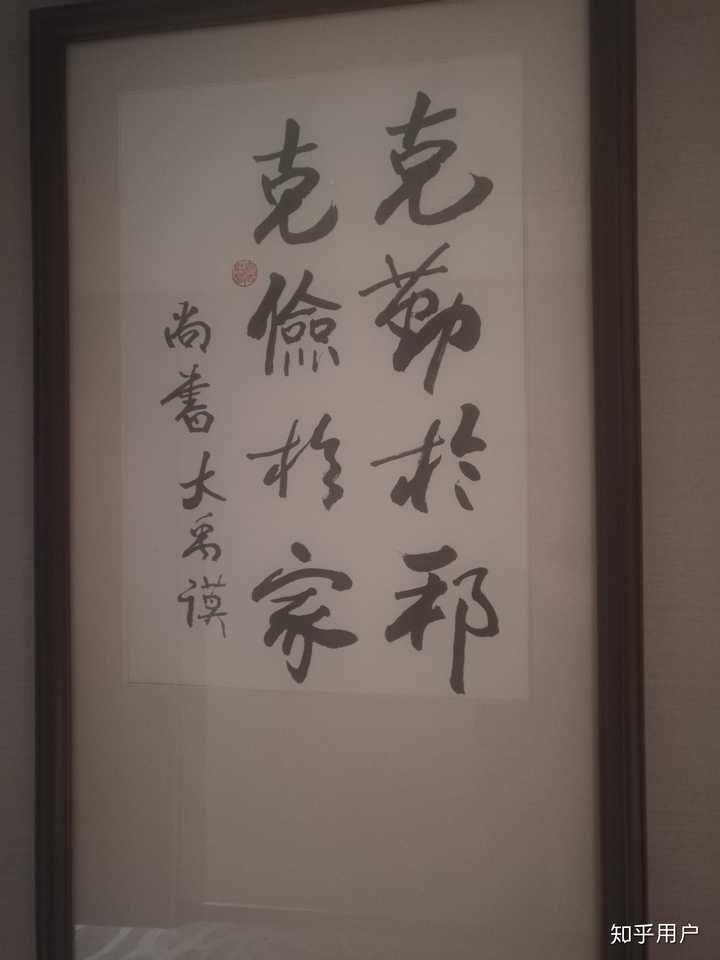 克勤於邦
克儉於家
尚書大禹謨
知乎用户